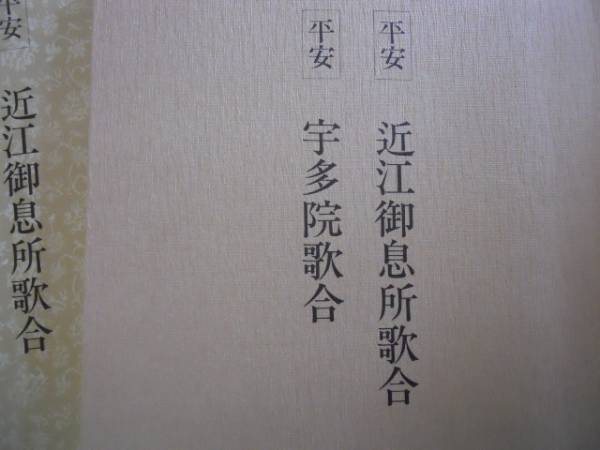 平安 近江御息所歌合
平安 宇多院歌合
平安 近江御息所歌合